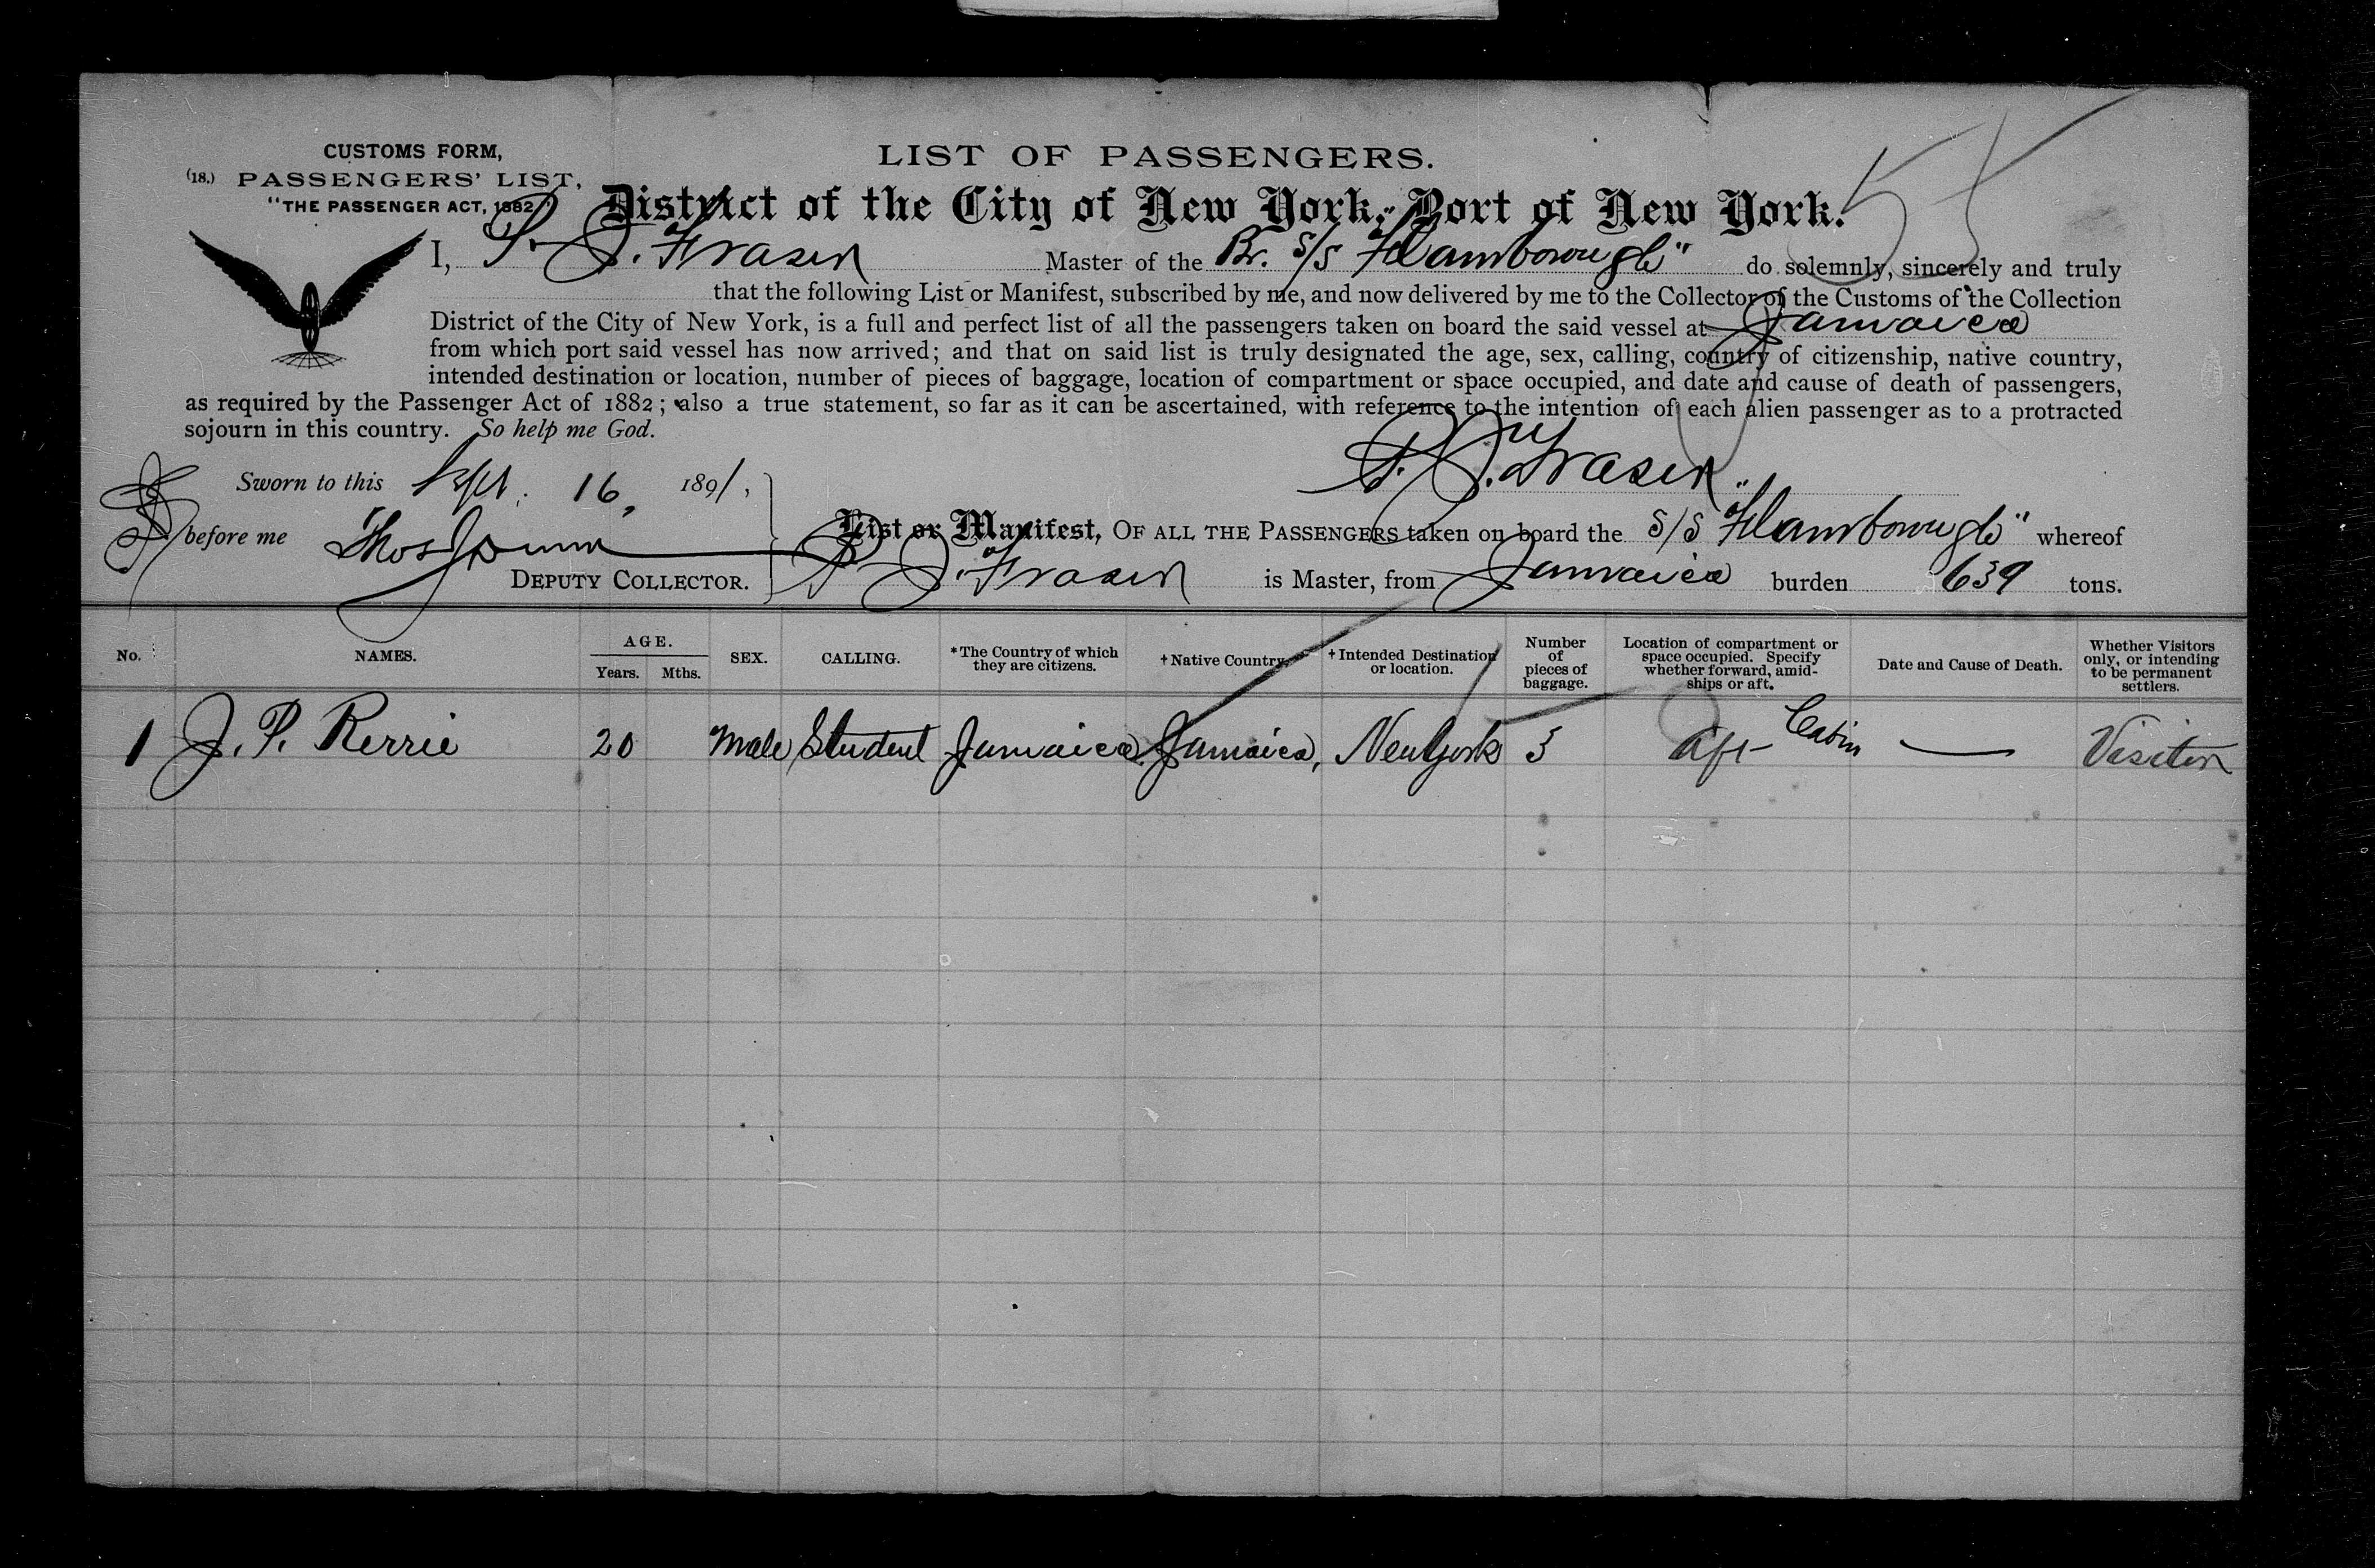 CUSTOMS FORM,
(18.) PASSENGERS' LIST,
"THE PASSENGER ACT, 1882."
LIST OF PASSENGERS.
District of the City of New York, Port of New York.
I, P. J. Fraser Master of the Br. S/S "Flamborough" do solemnly, sincerely and truly
that the following List or Manifest, subscribed by me, and now delivered by me to the Collector of the Customs of the Collection
District of the City of New York, is a full and perfect list of all the passengers taken on board the said vessel at Jamaica
from which port said vessel has now arrived; and that on said list is truly designated the age, sex, calling, country of citizenship, native country,
intended destination or location, number of pieces of baggage, location of compartment or space occupied, and date and cause of death of passengers,
as required by the Passenger Act of 1882; also a true statement, so far as it can be ascertained, with reference to the intention of each alien passenger as to a protracted
sojourn in this country. So help me God.
P. J. Fraser
Sworn to this Sept. 16, 1891,
before me Thos
DEPUTY COLLECTOR.
List or Manifest, OF ALL THE PASSENGERS taken on board the S/S "Flamborough" whereof
P. J. Fraser is Master, from Jamaica burden 639 tons.
No. NAMES. AGE. Years. Mths. SEX. CALLING. *The Country of which they are citizens. †Native Country. †Intended Destination or location. Number of pieces of baggage. Location of compartment or space occupied. Specify whether forward, amidships or aft. Date and Cause of Death. Whether Visitors only, or intending to be permanent settlers.
1 J. P. Rerrie 20 Male Student Jamaica Jamaica, New York 3 Aft Cabin — Visitor